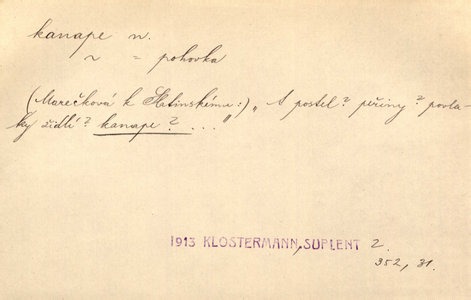 kanape n.
~ = pohovka
(Marečková k Slatinskému:) „A postel? peřiny? povla-
ky židlí? kanape? ..."
1913 KLOSTERMANN, SUPLENT 2.
352, 31.